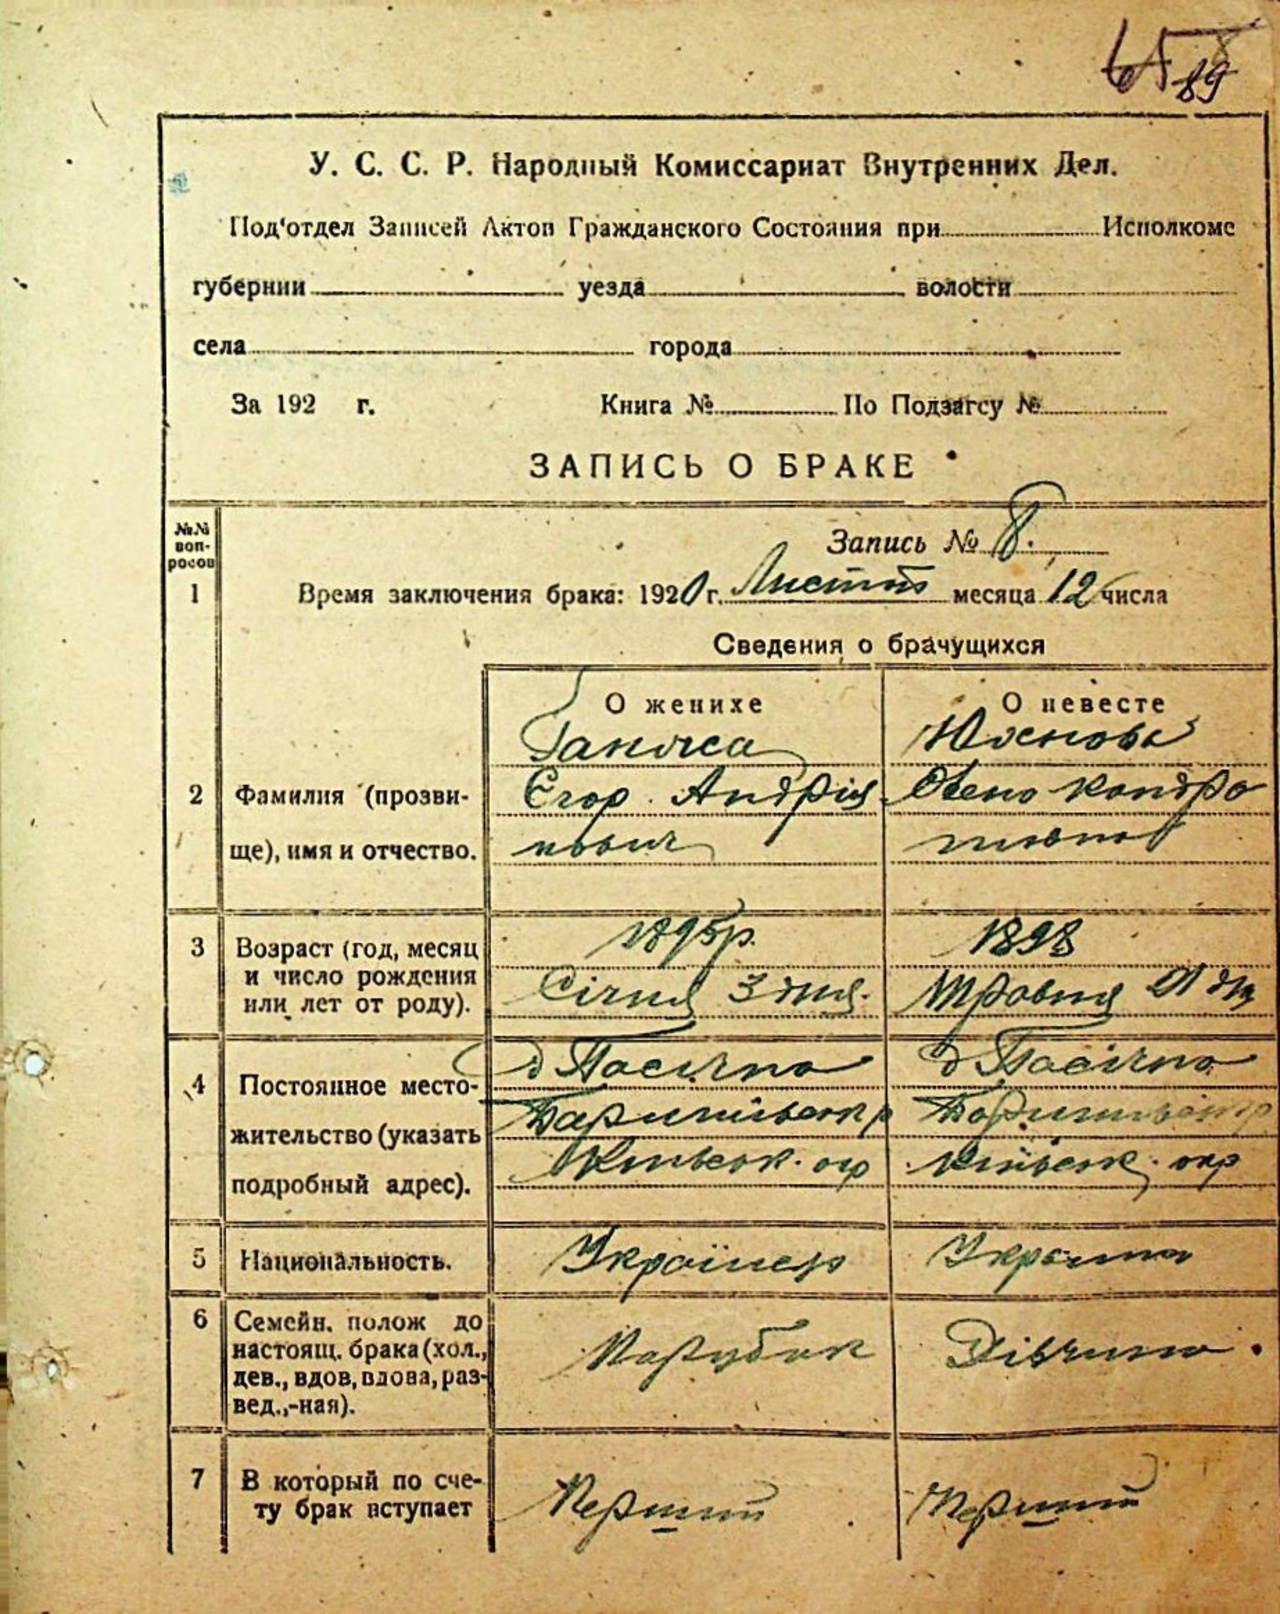 89
У. С. С. Р. Народный Комиссариат Внутренних Дел.
Под'отдел Записей Актов Гражданского Состояния при Исполкоме
губернии уезда волости
села города
За 192 г. Книга № По Подзагсу №
ЗАПИСЬ О БРАКЕ
№№ воп-росов
Запись № 8.
1 Время заключения брака: 1920 г. месяца 12 числа
Сведения о брачущихся
О женихе О невесте
2 Фамилия (прозви-
Єгор Андрія
ще), имя и отчество.
нович
3 Возраст (год, месяц
и число рождения
или лет от роду).
1895 р. 1898
Січня 3 дня. Травня 21 дня
4 Постоянное место-
жительство (указать
подробный адрес).
д Пасічна д Пасічна
5 Национальность. Українец Українка
6 Семейн. полож до
настоящ. брака (хол.,
дев., вдов, вдова, раз-
вед.,-ная).
Парубок Дівчина.
7 В который по сче-
ту брак вступает
Перший Перший